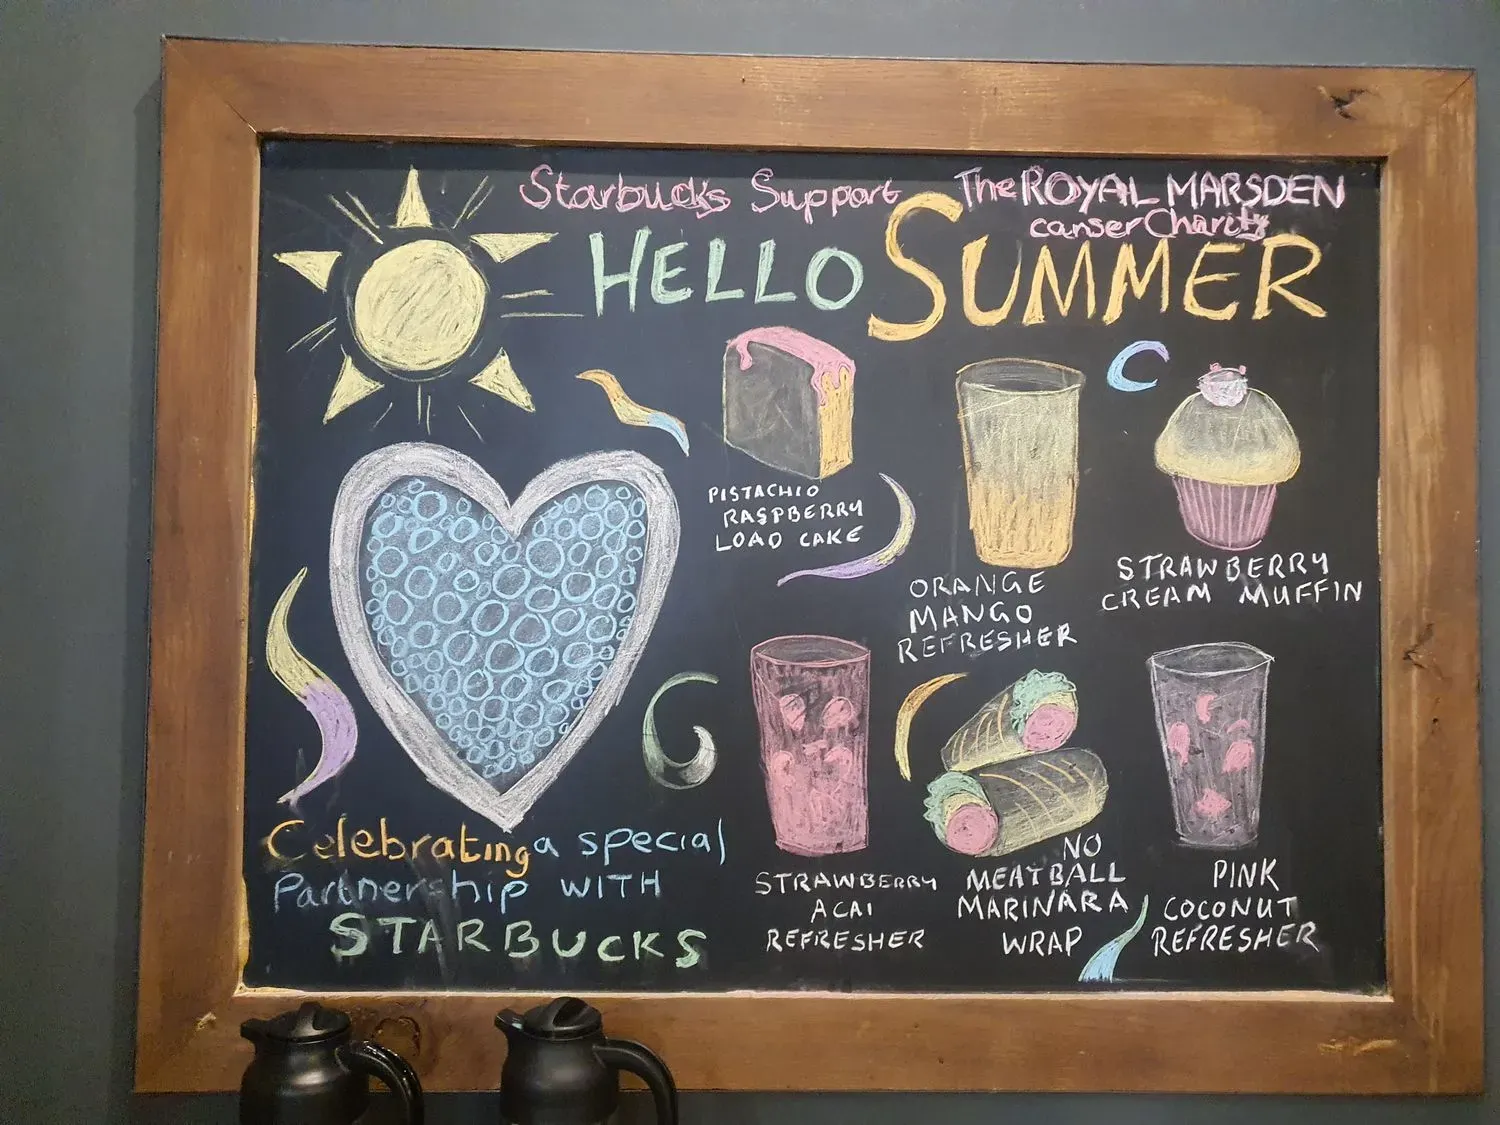 Starbucks Support The ROYAL MARSDEN
canser Charity
HELLO SUMMER
PISTACHIO
RASPBERRY
LOAD CAKE
ORANGE
MANGO
REFRESHER
STRAWBERRY
CREAM MUFFIN
STRAWBERRY
ACAI
REFRESHER
NO
MEATBALL
MARINARA
WRAP
PINK
COCONUT
REFRESHER
Celebrating a special
Partnership WITH
STARBUCKS